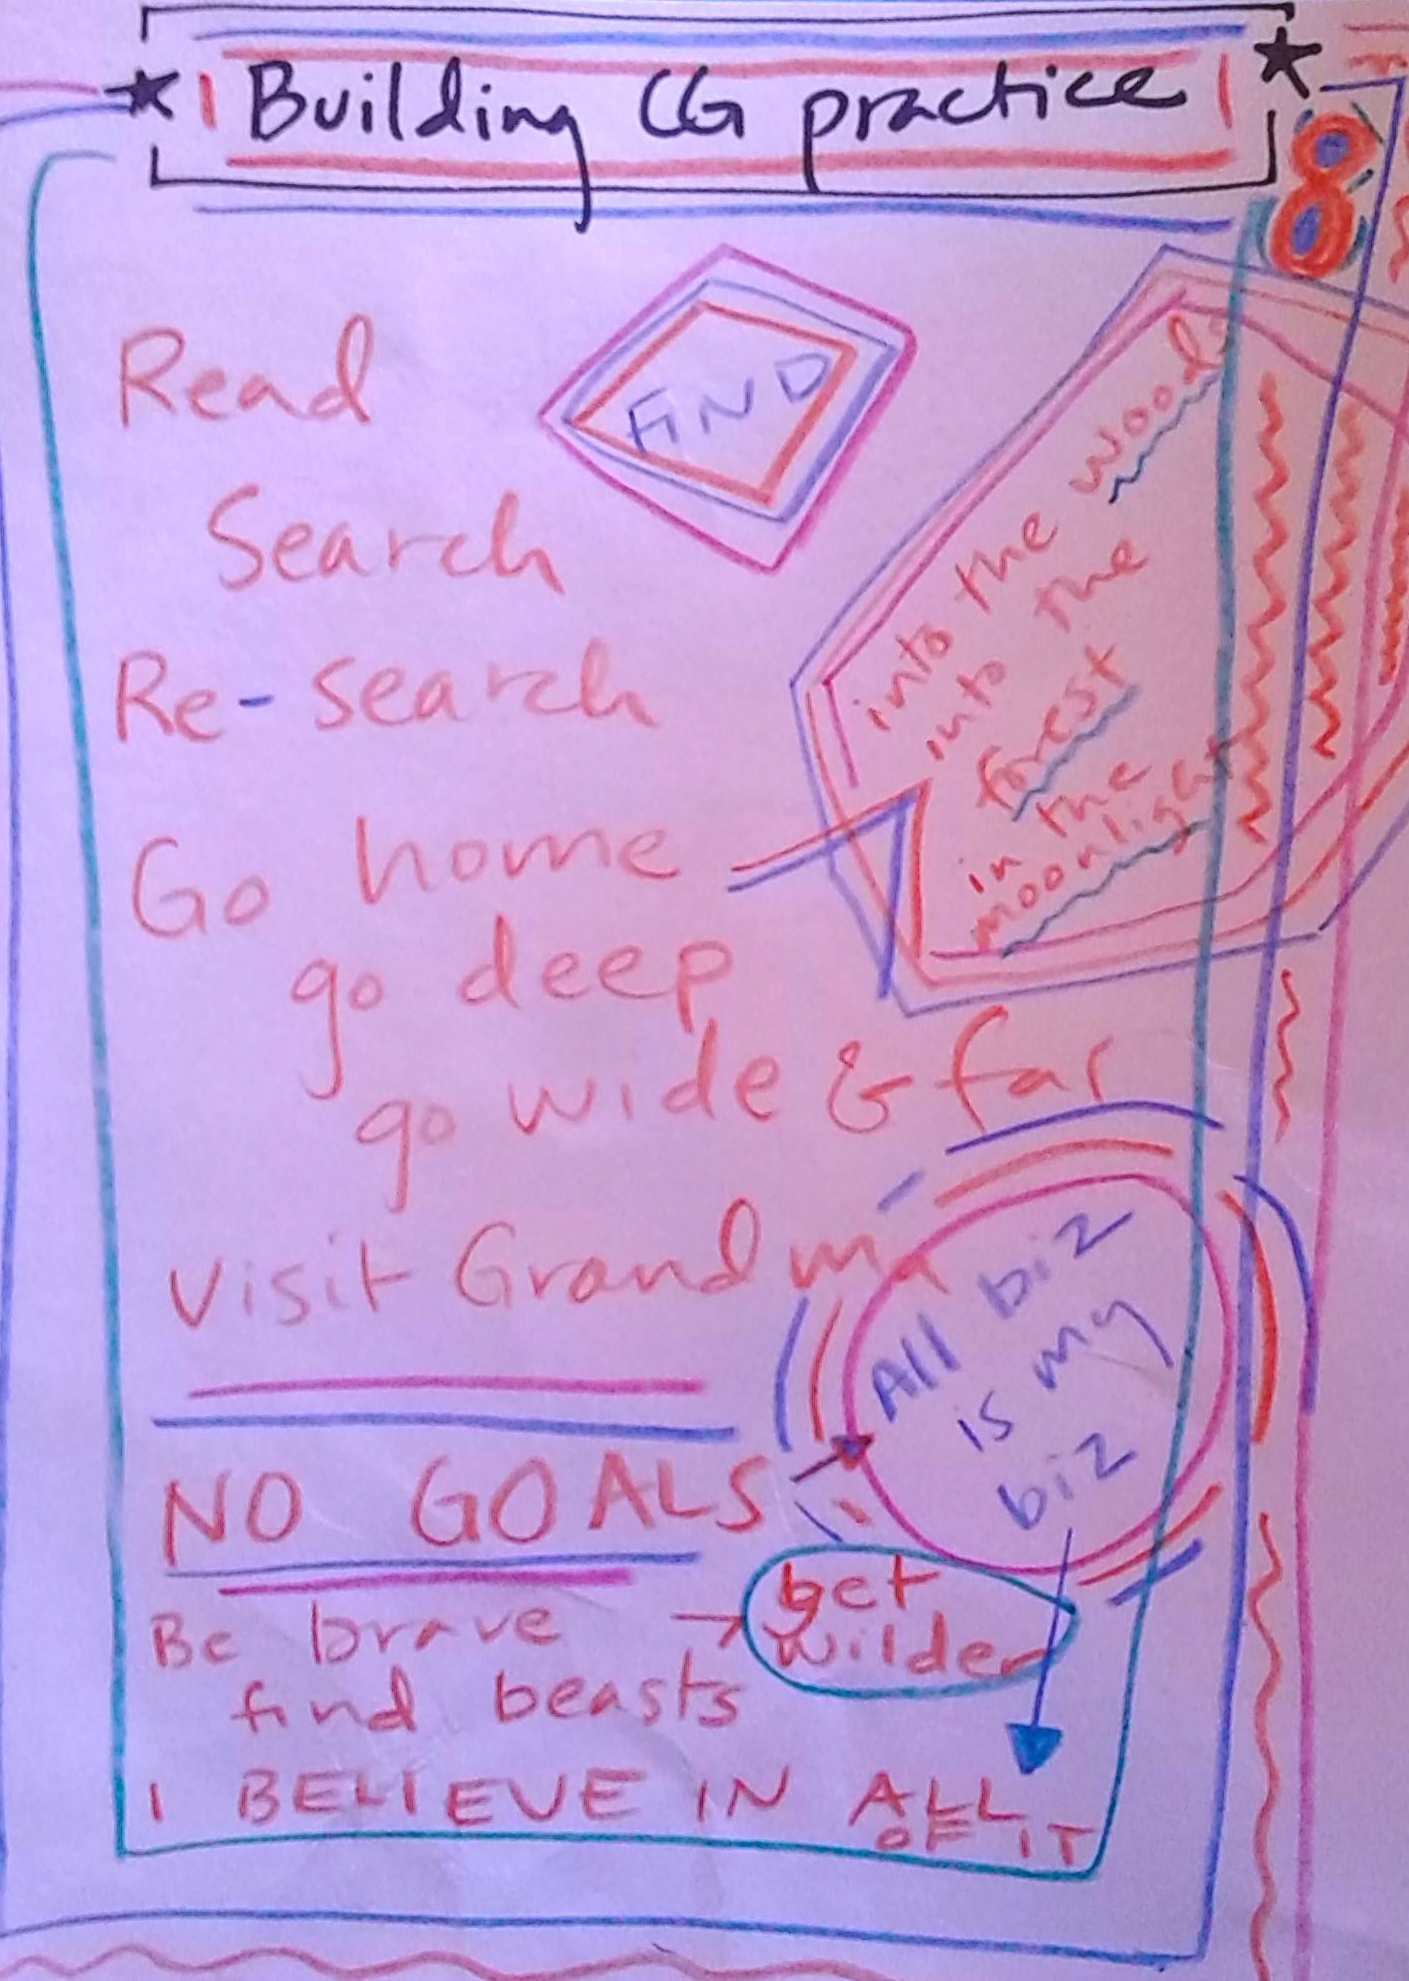 Building CG practice
8
Read
FIND
Search
Re-search
Go home
go deep
go wide & far
into the woods
into the
forest
in the
moonlight
Visit Grandma
All biz
is my
biz
NO GOALS
Be brave
find beasts
get
wilder
I BELIEVE IN ALL
OF IT